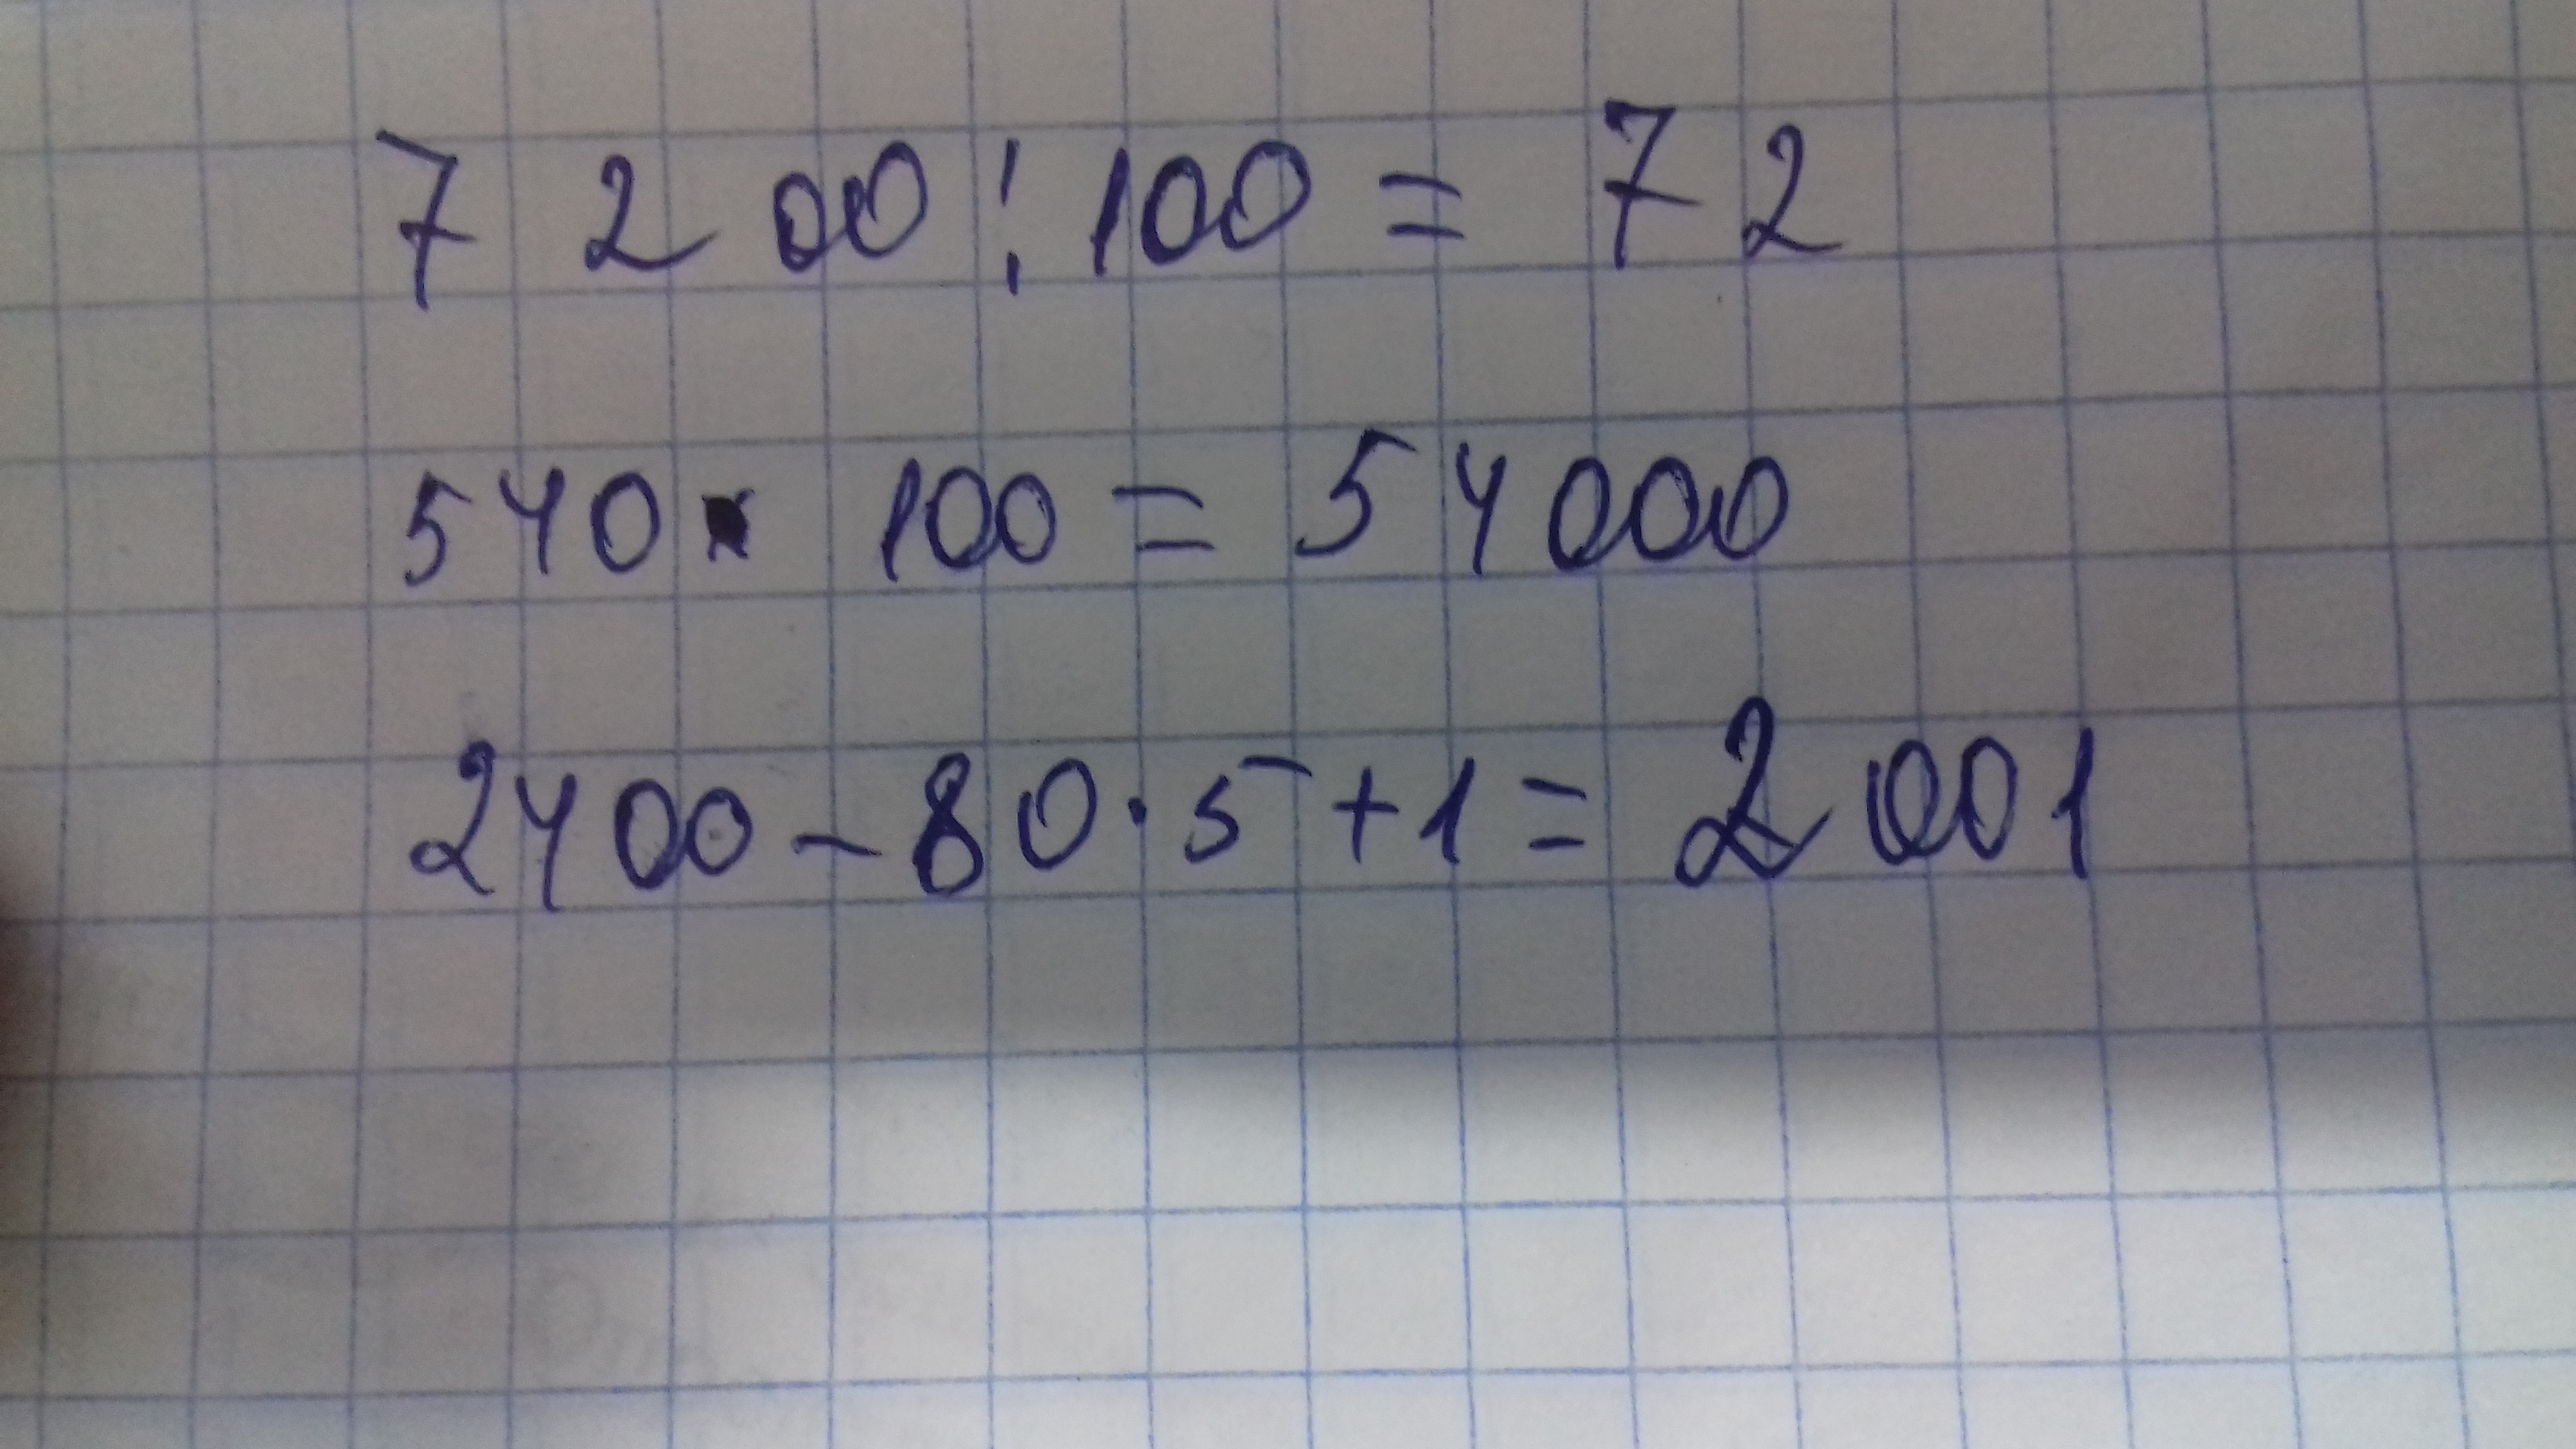 7 2 00 : 100 = 72
540 · 100 = 54000
2400 - 80 · 5 + 1 = 2001